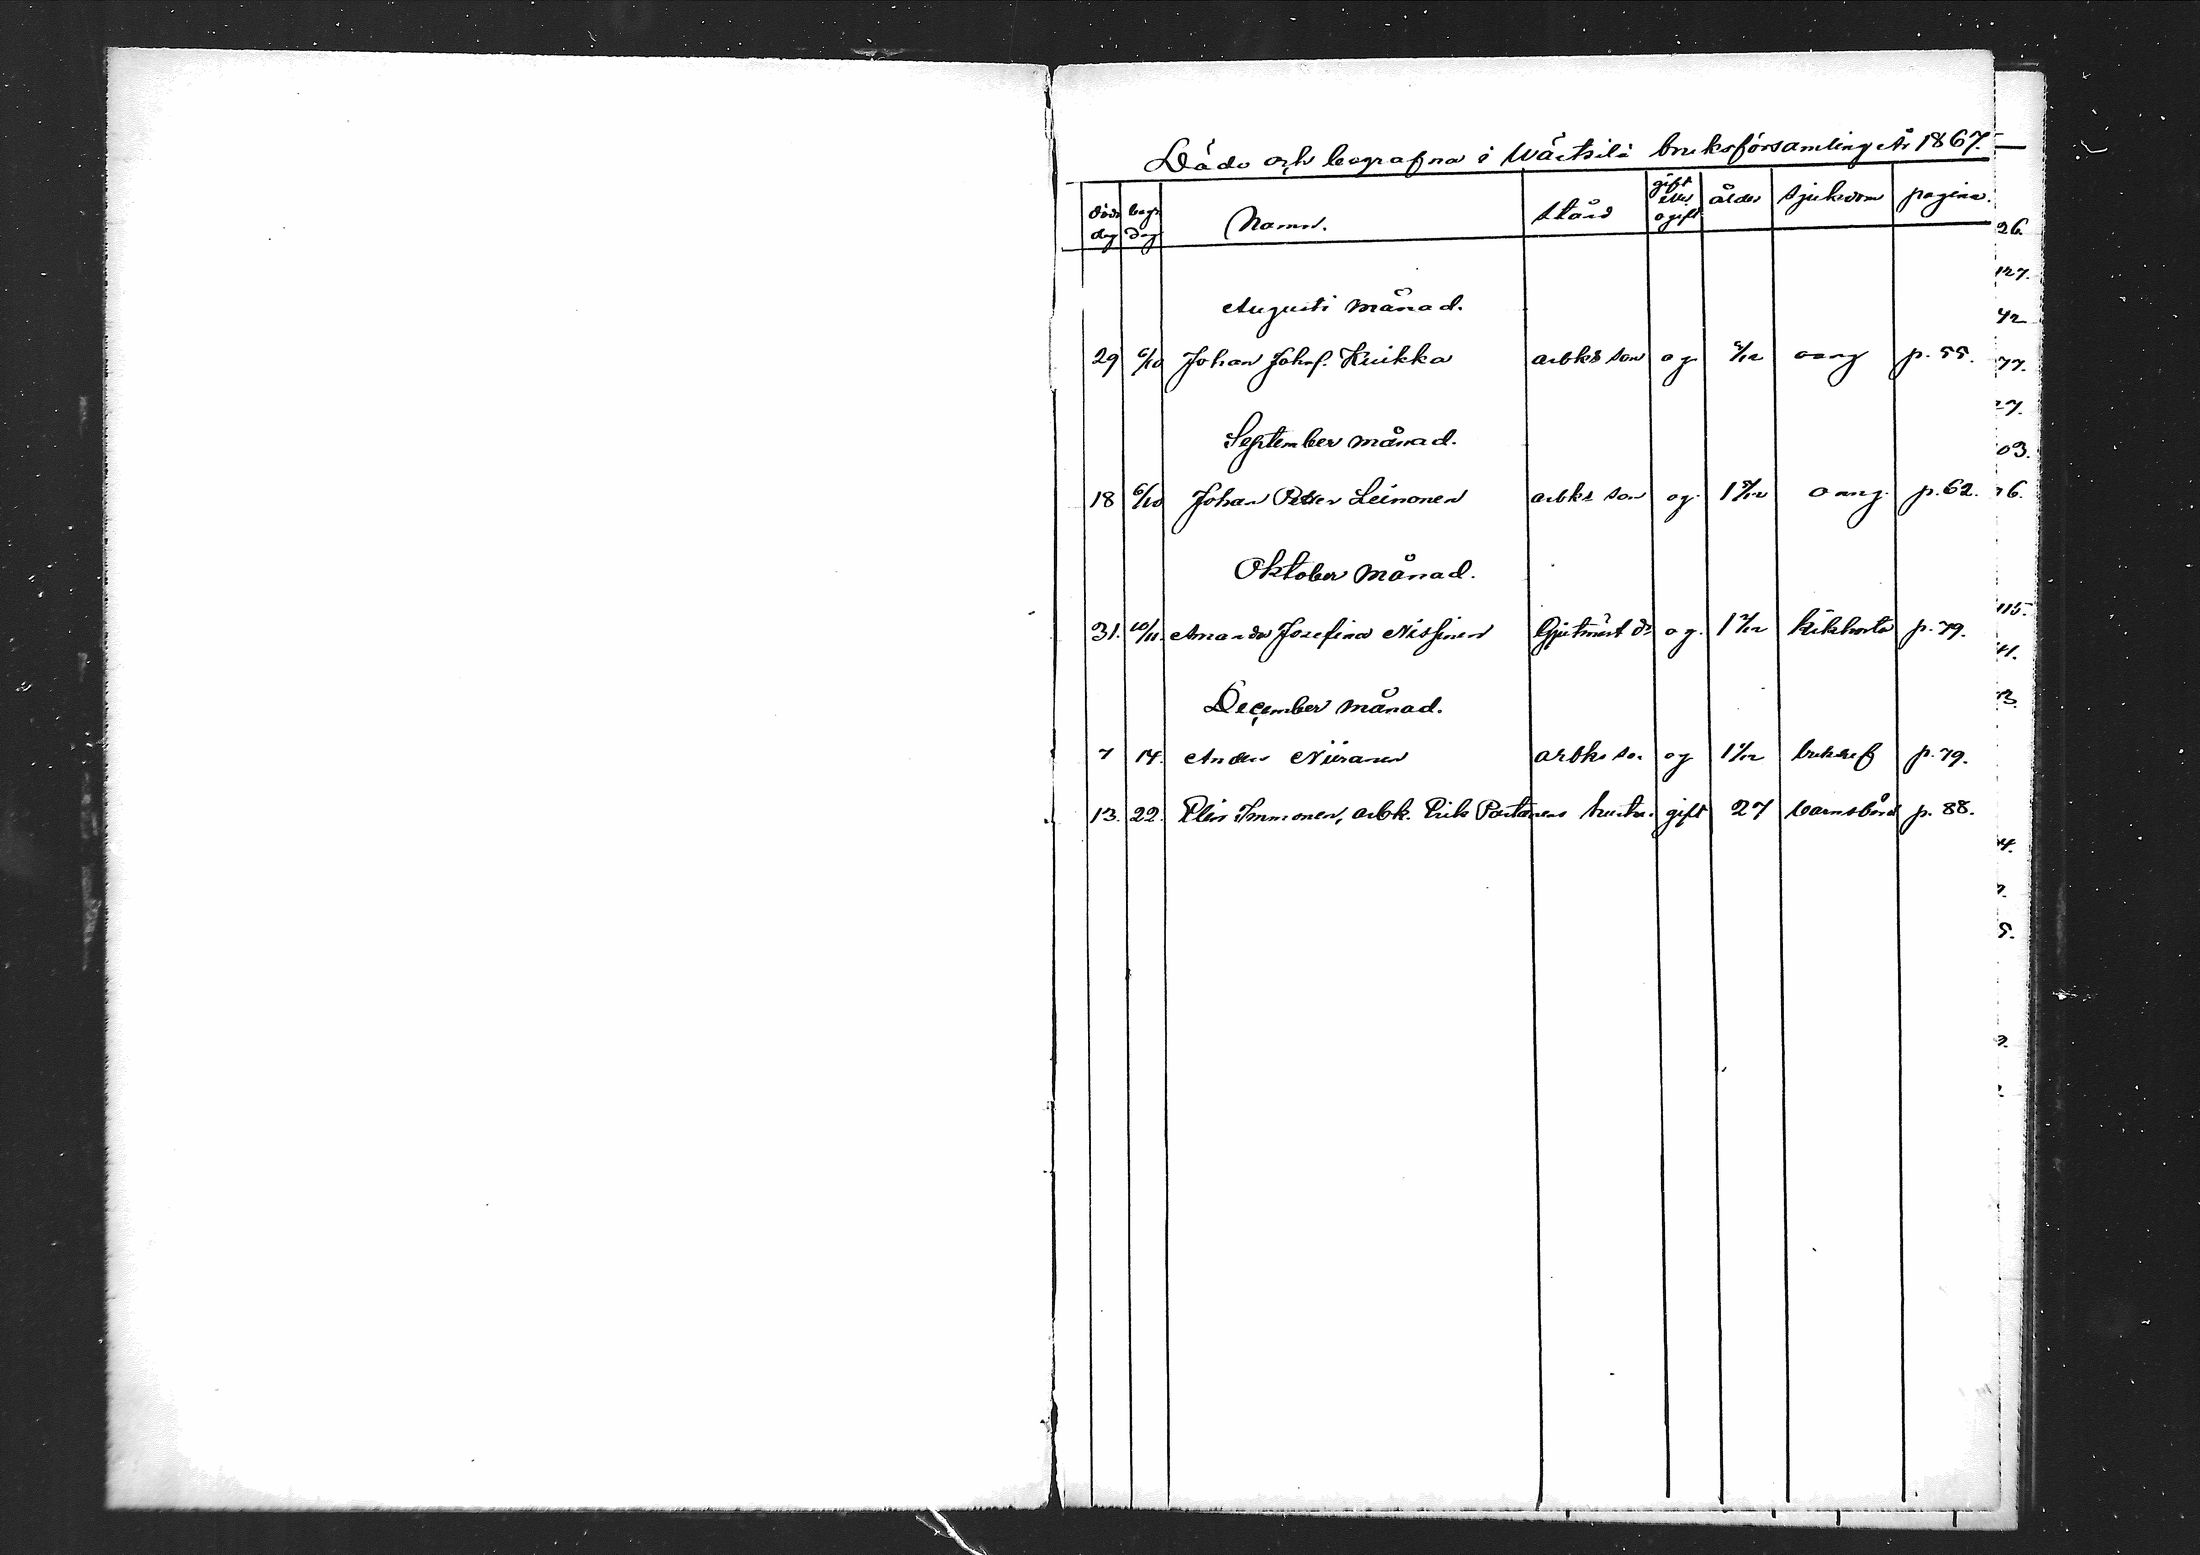 Döde och begrafna i Wärtsilä bruksförsamling År 1867.
döds dag begr dag Namn. stånd gift eller ogift ålder sjukdom pagina.
Augusti månad.
29 6/10 Johan Johsf. Kuikka arbks son og 5/12 oang p. 55.
September månad.
18 6/10 Johan Petter Leinonen arbks son og. oang. p. 62.
Oktober månad.
31. 10/11. Amanda Josefina Nissinen Gjutmäst dr og. kikhosta p. 79.
December månad.
7 14. Anders Niiranen arbks son og bukref p. 79.
13. 22. Elin Immonen, arbk. Erik Partanens hustru. gift 27 barnsbörd p. 88.
26.
127.
42
77.
27.
03.
76.
115.
41.
3.
4.
5.